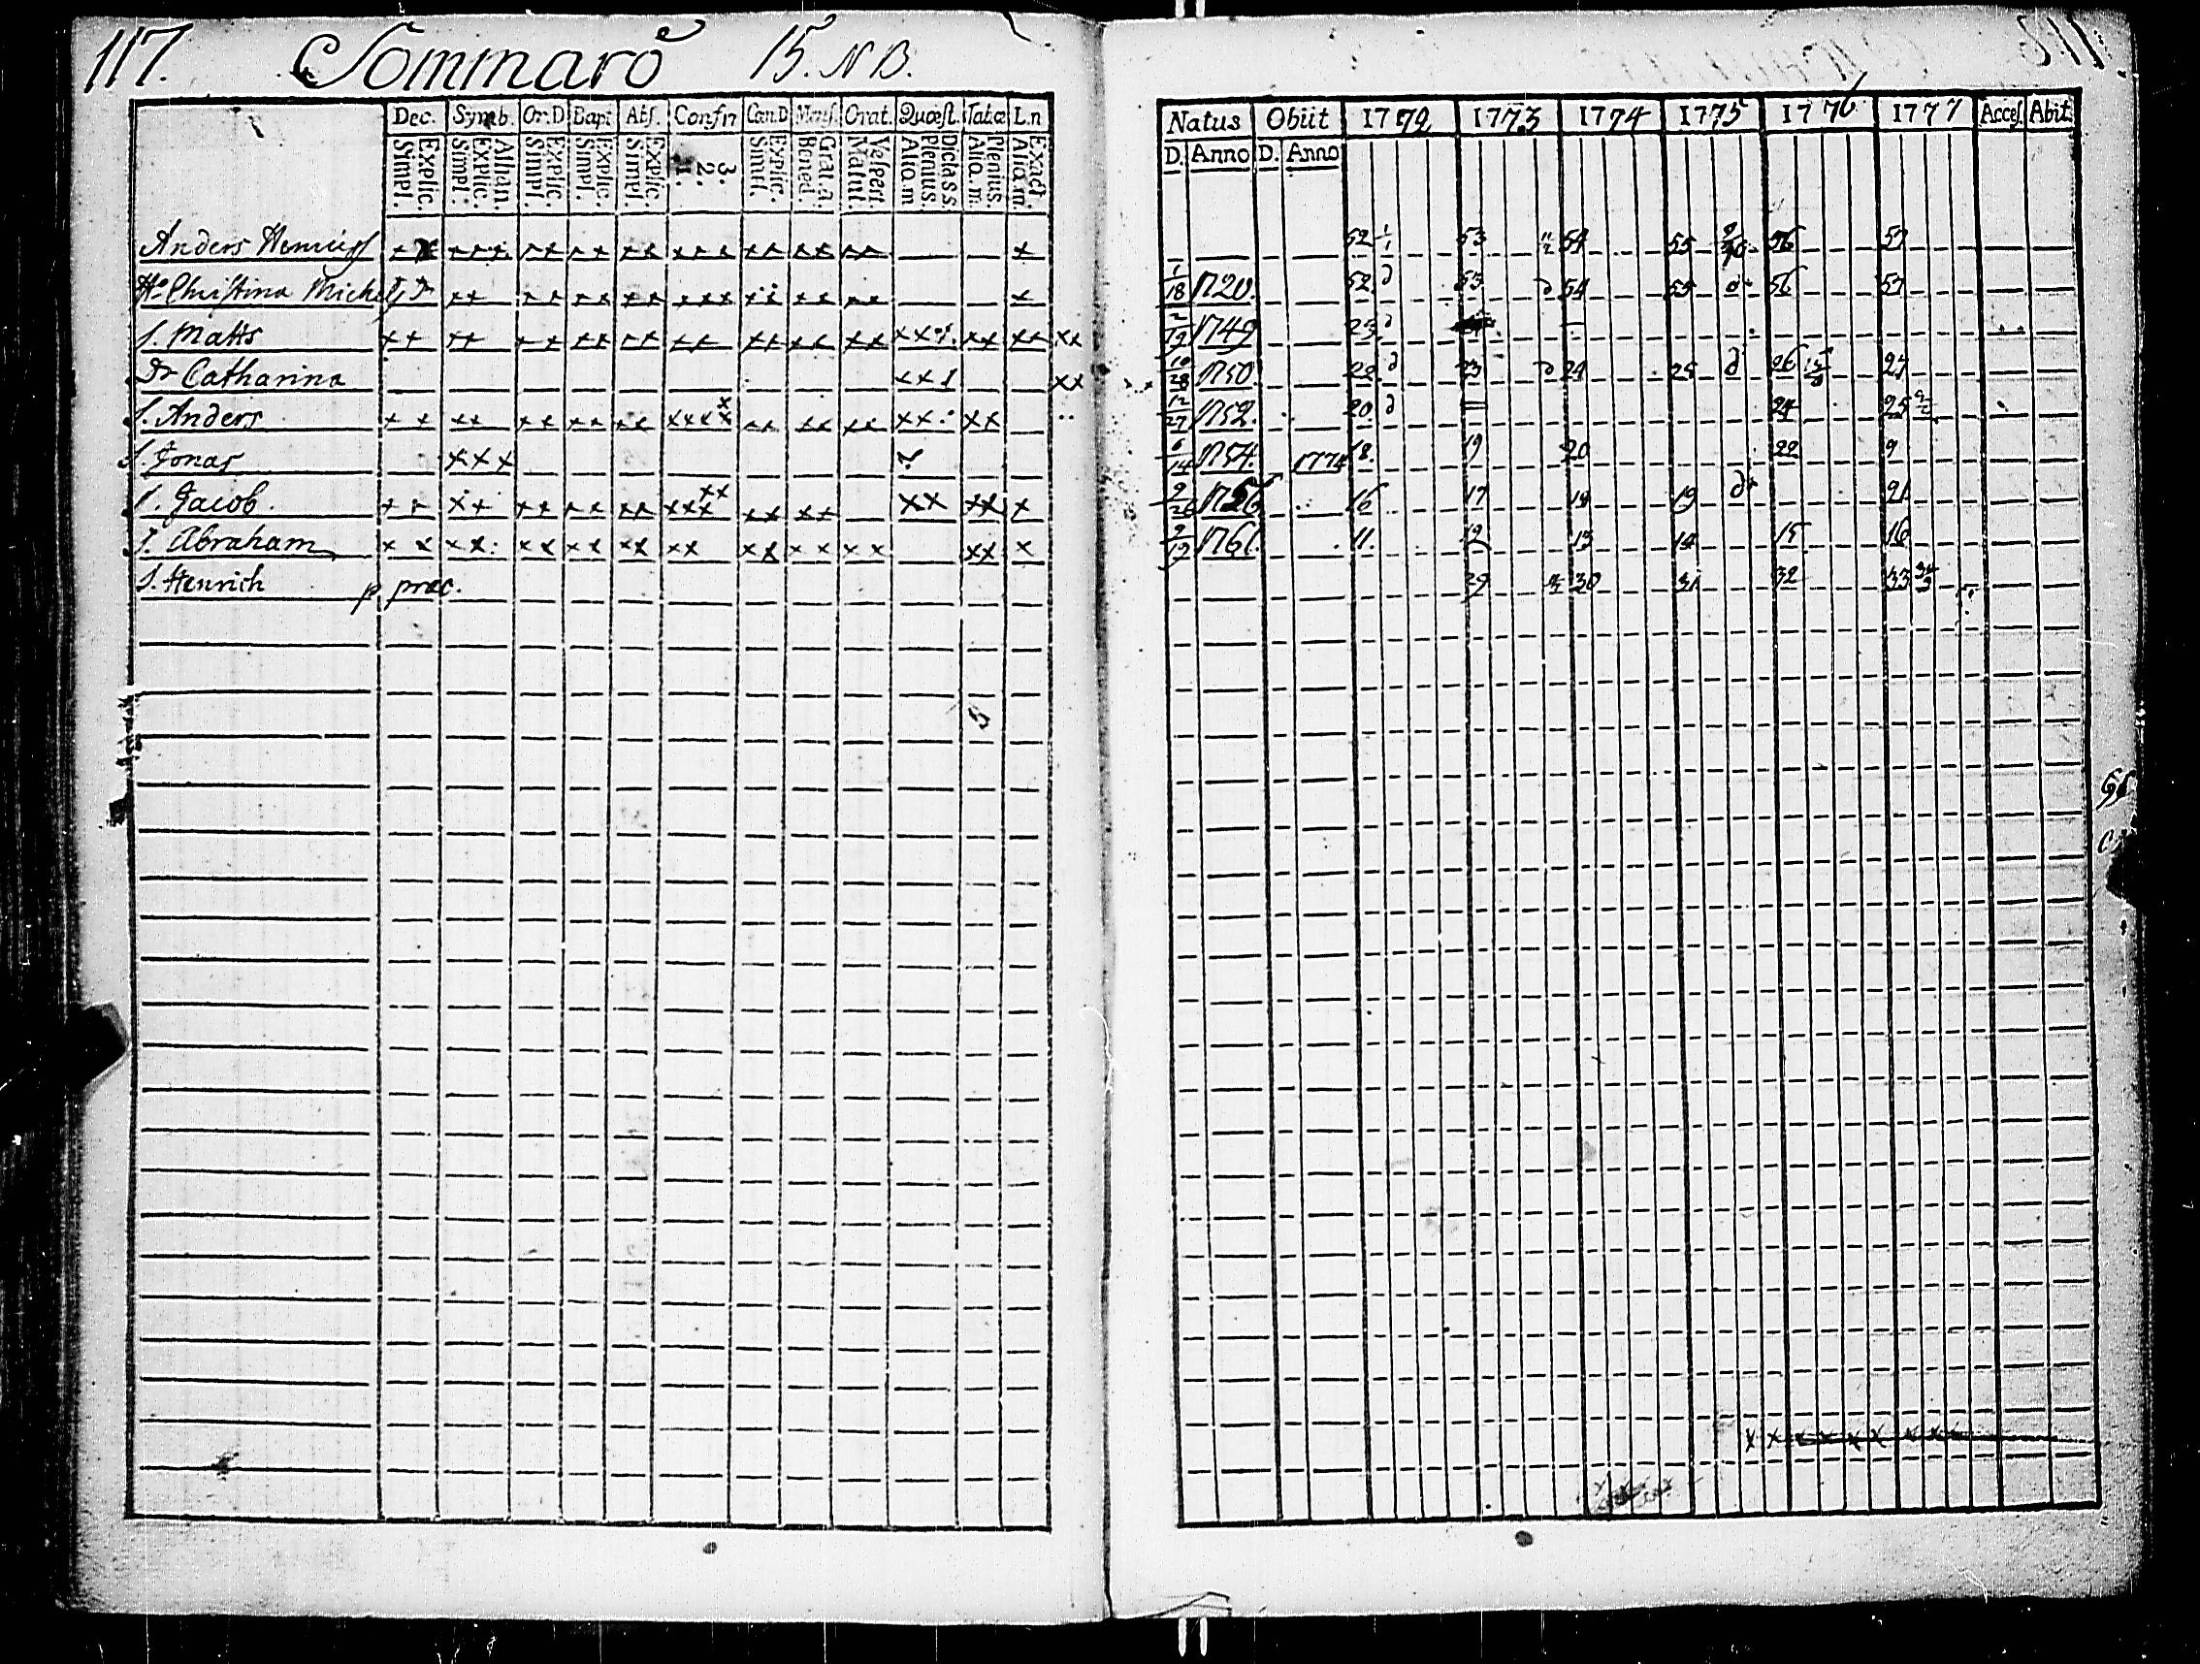 117. Sommarö 15. NB.
Dec. Symb. Or.D Bapt Abs. Confn Cœn.D Mens. Orat. Quæst. Tabæ L.n
Simpl. Explic. Simpl. Explic. Athan. Simpl. Explic. Simpl. Explic. Simpl. Explic. 1. 2. 3. Simpl. Explic. Bened. Grat. a. Matut. Vespert. Aliq.m Plenius. Dictass. Aliq.m Plenius. Aliq.m Exact.
Anders Henrichss
Ho Christina Michelsdr
S. Matts
Dr Catharina
S. Anders
S. Jonas
S. Jacob.
S. Abraham
S. Henrich p. præc.
118.
Natus Obiit 1772 1773 1774 1775 1776 1777 Acces. Abit.
D. Anno D. Anno
52 1/1 53 11/2 54 55 56 57
1/18 1720. 52 d 53 d 54 55 d 56 57
1749 23 d
10/28 1750 22 d 23 d 24 25 d 26 27
12/27 1752. 20 d 24 25
6/14 1754. 1774 18. 19 20 22 9
1756 16 17 18 19 d 21
1761. 11. 12 13 14 15 16
29 30 31 32 33